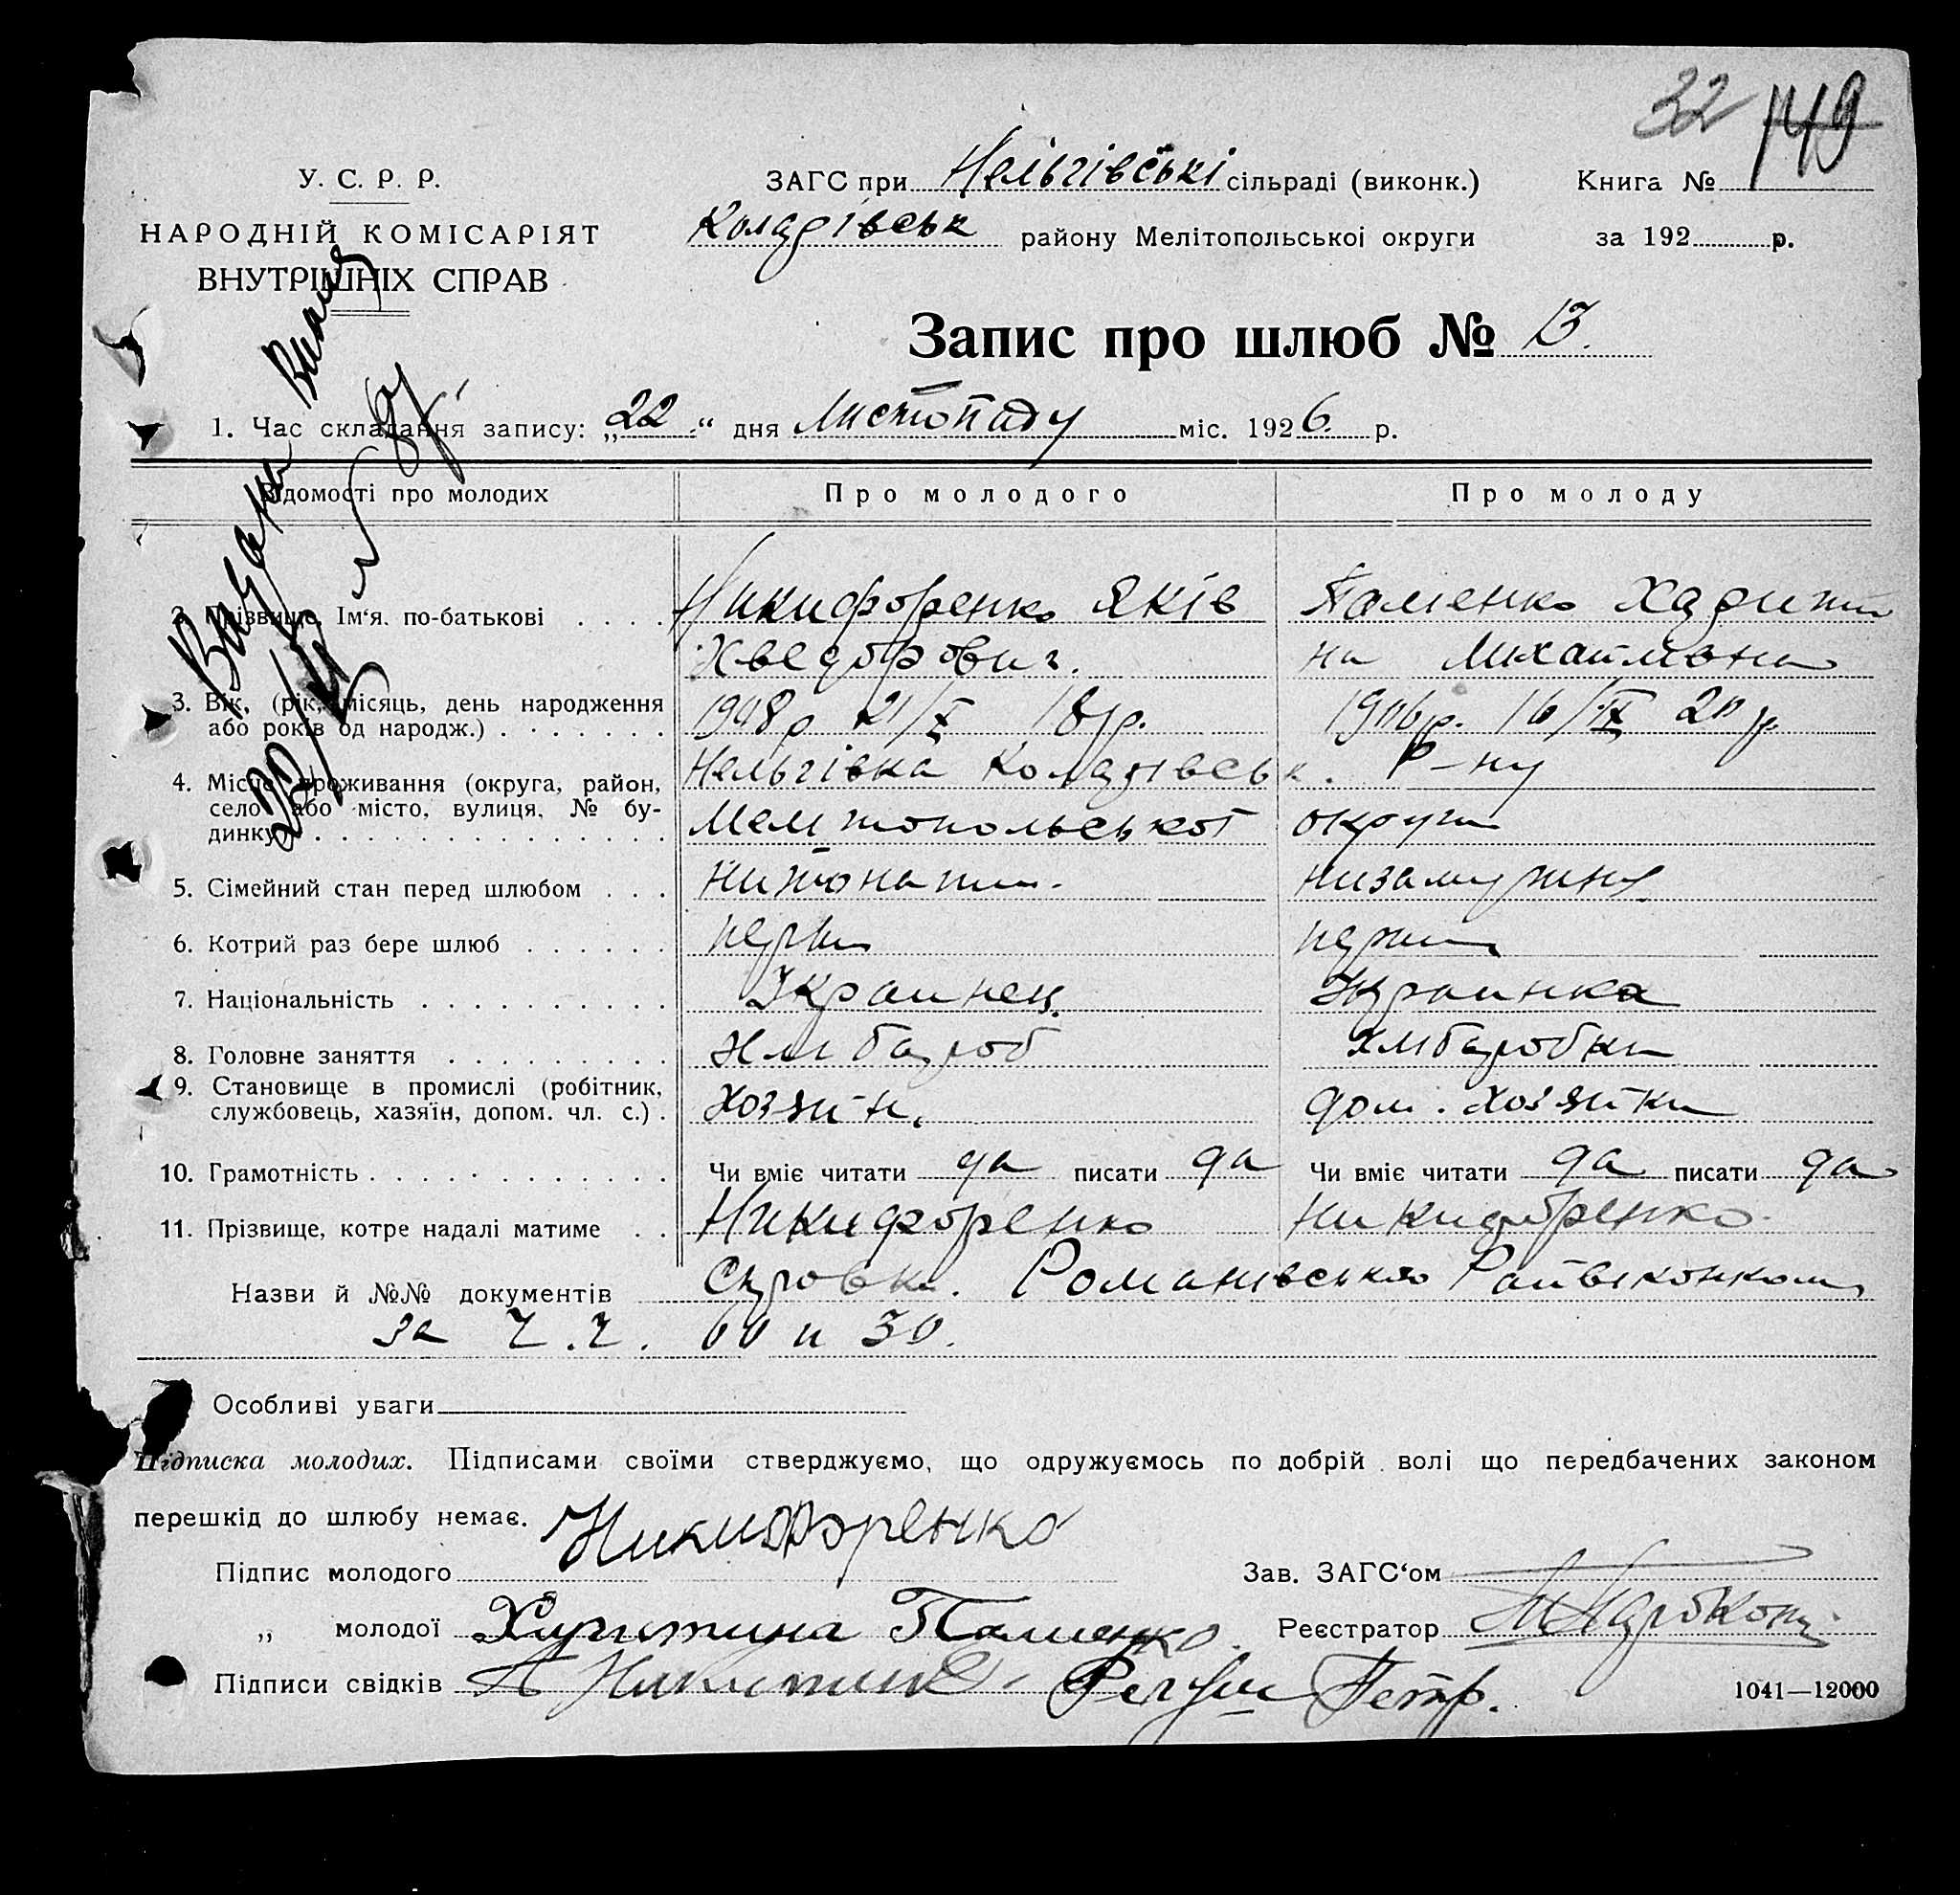 32 149
У. С. Р. Р.
НАРОДНІЙ КОМІСАРІЯТ
ВНУТРІШНІХ СПРАВ
ЗАГС при Нельгівські сільраді (виконк.)
Коларівськ району Мелітопольської округи
Книга №
за 192 р.
Запис про шлюб № 13.
1. Час складання запису: „22“ дня Листопаду міс. 1926. р.
Відомості про молодих Про молодого Про молоду
2. Прізвище, Ім‘я. по-батькові Никифоренко Яків Паменко Харити
Хведорович. на Михайловна
3. Вік, (рік, місяць, день народження
або років од народж.) 1908 р 21/X 18 р. 1906 р. 16/IX 20 р.
4. Місце проживання (округа, район,
село або місто, вулиця, № бу-
динку) Нельгівка Коларівськ. Р-ну
Мелитопольської округи
5. Сімейний стан перед шлюбом
6. Котрий раз бере шлюб
7. Національність Украинец Украинка
8. Головне заняття Хлибароб Хлібаробка
9. Становище в промислі (робітник,
службовець, хазяїн, допом. чл. с.) Хозяїн. дом. хозяйка
10. Грамотність Чи вміє читати да писати да Чи вміє читати да писати да
11. Прізвище, котре надалі матиме Никифоренко Никифоренко
Назви й №№ документів Романівського Райвиконкому
за ч.ч. 60 и 30.
Особливі уваги
Підписка молодих. Підписами своїми стверджуємо, що одружуємось по добрій волі що передбачених законом
перешкід до шлюбу немає.
Підпис молодого Никифоренко
Зав. ЗАГС‘ом
„ молодої Харитина Паменко.
Реєстратор
Підписи свідків Петр.
1041—12000